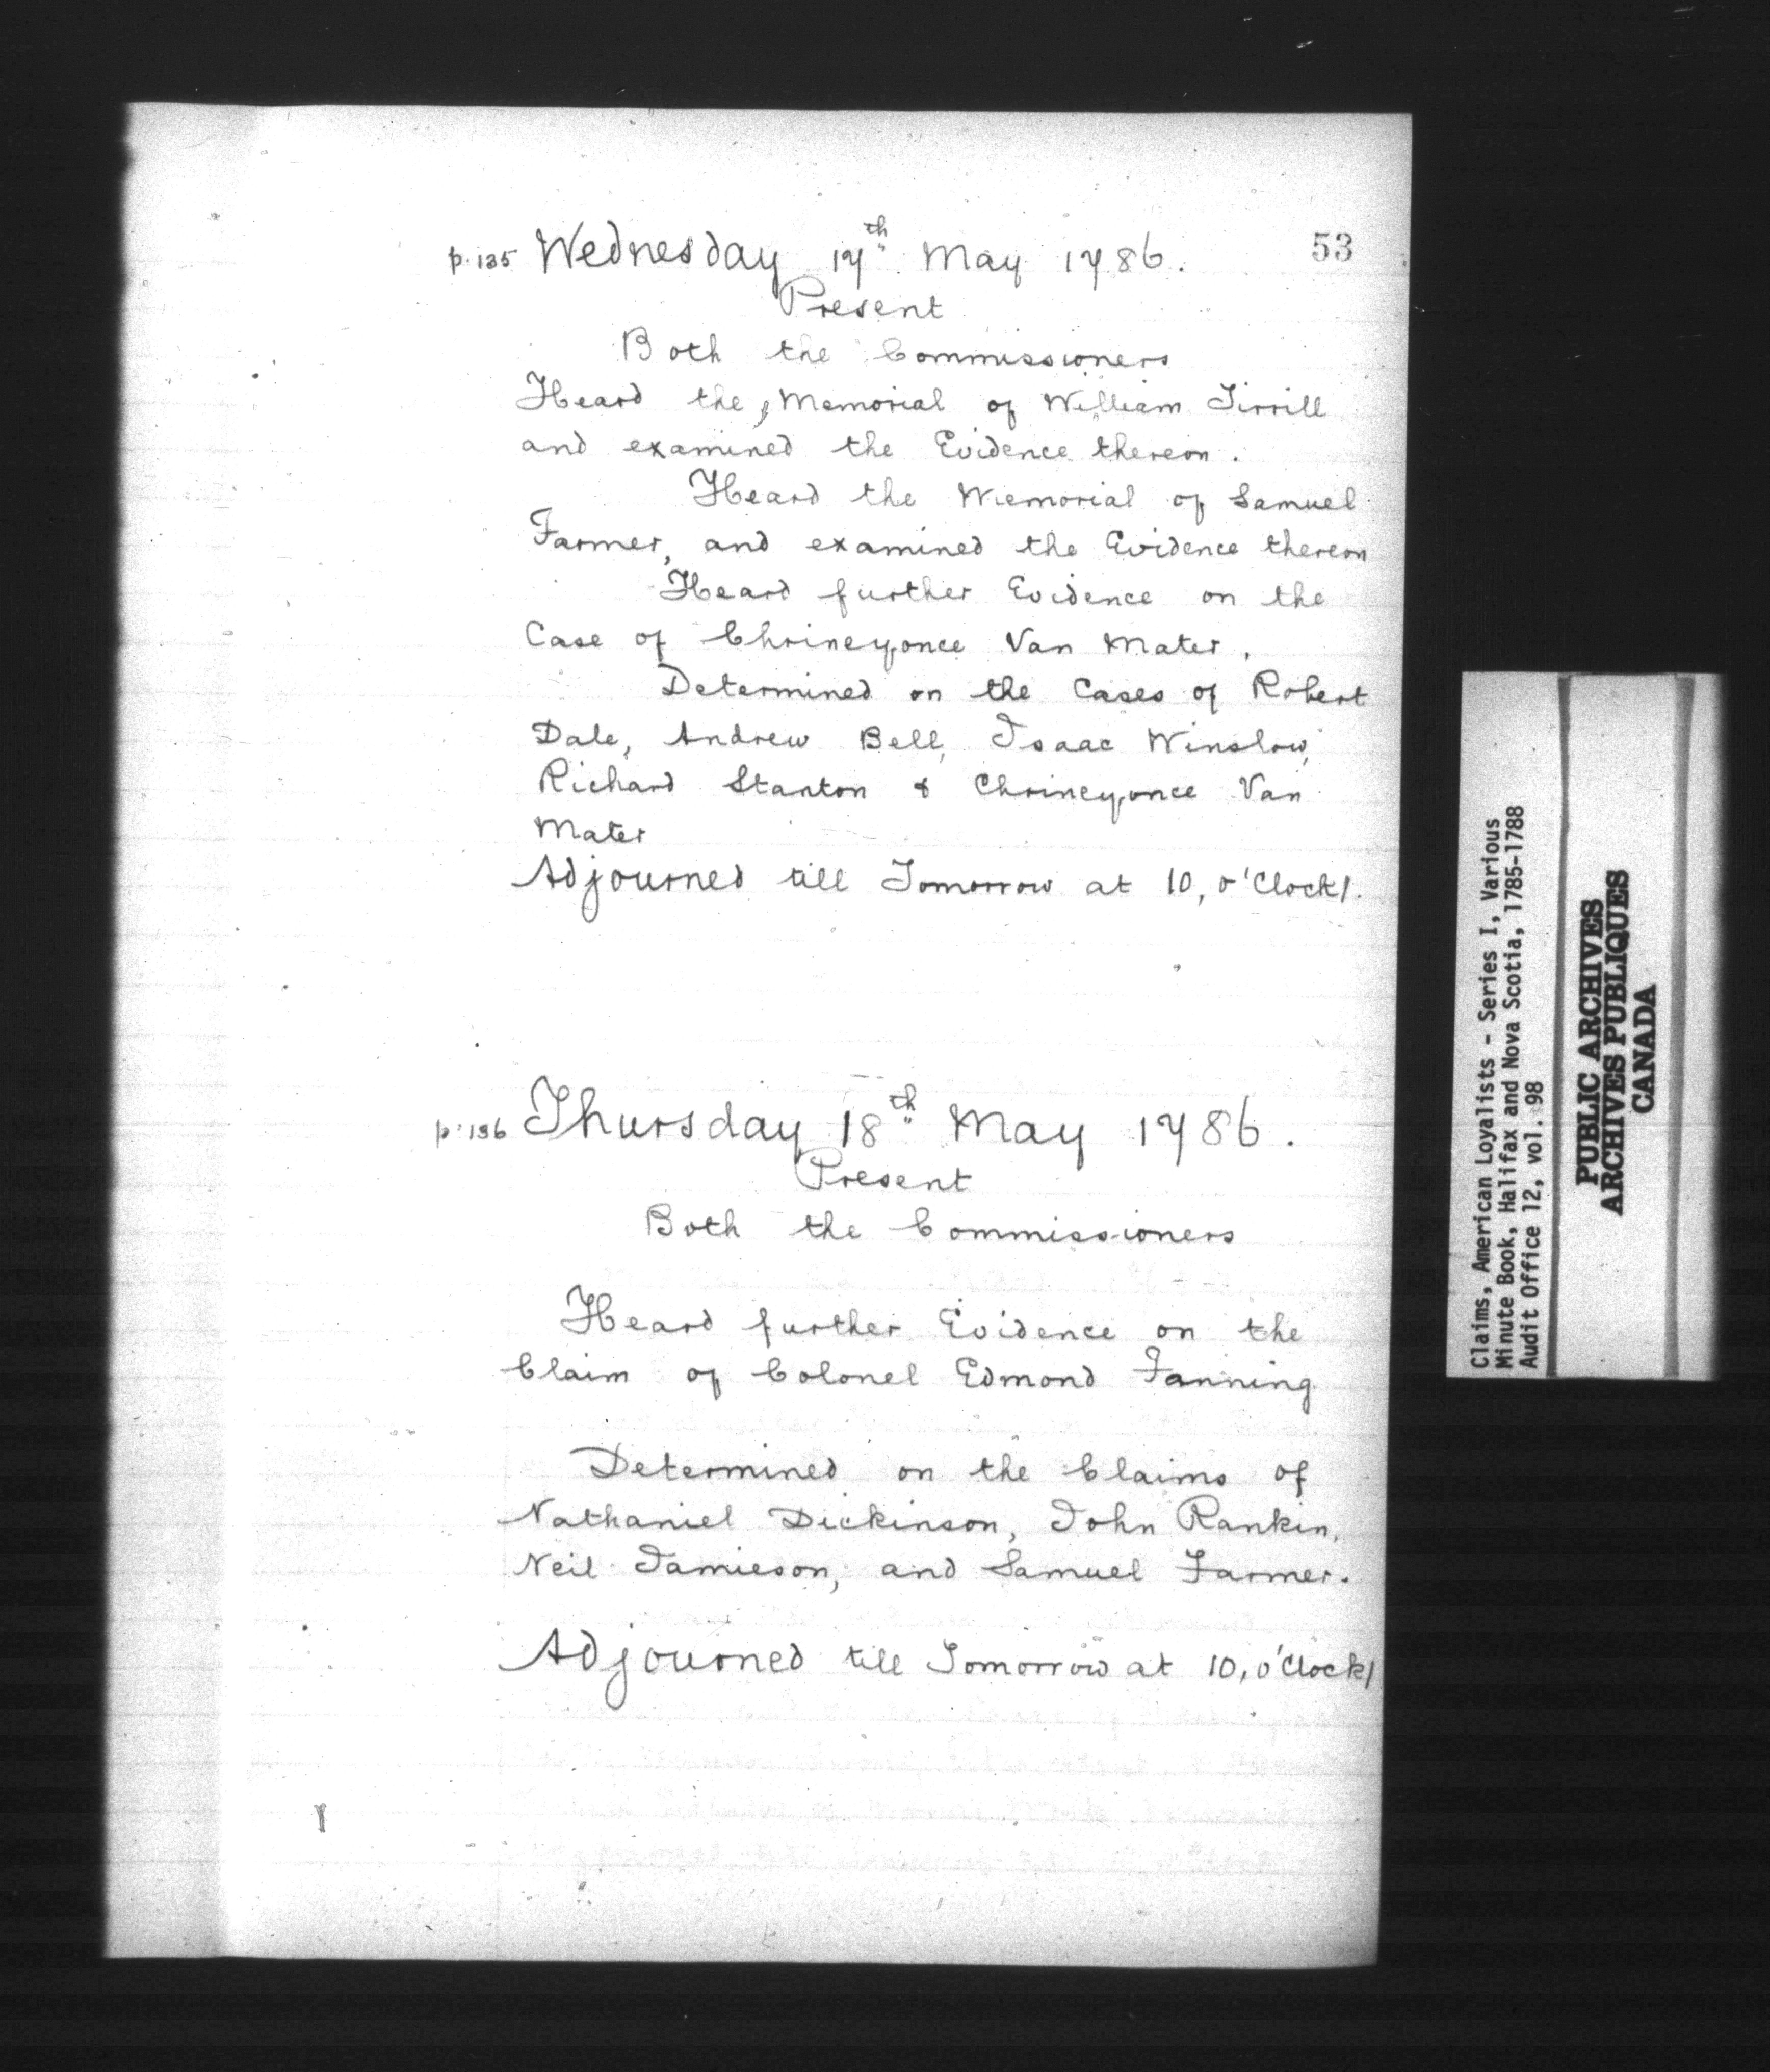 53
p. 135 Wednesday 17th May 1786.
Present
Both the Commissioners
Heard the Memorial of William Tirrill
and examined the Evidence thereon.
Heard the Memorial of Samuel
Farmer, and examined the Evidence thereon
Heard further Evidence on the
Case of Chrineyonce Van Mater.
Determined on the Cases of Robert
Dale, Andrew Bell, Isaac Winslow,
Richard Stanton & Chrineyonce Van
Mater
Adjourned till Tomorrow at 10, o'Clock/.
p. 136 Thursday 18th May 1786.
Present
Both the Commissioners
Heard further Evidence on the
Claim of Colonel Edmond Fanning
Determined on the Claims of
Nathaniel Dickinson, John Rankin,
Neil Jamieson, and Samuel Farmer.
Adjourned till Tomorrow at 10, o'Clock/
Claims, American Loyalists - Series I, Various
Minute Book, Halifax and Nova Scotia, 1785-1788
Audit Office 12, vol. 98
PUBLIC ARCHIVES
ARCHIVES PUBLIQUES
CANADA